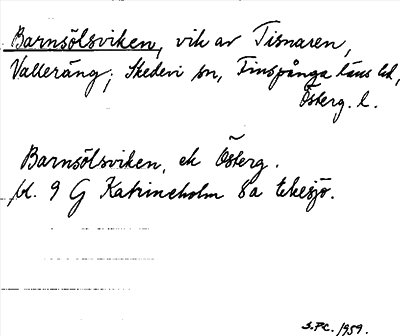 Barnsölsviken, vik av Tisnaren,
Valleräng; Skedevi sn, Finspånga läns hd,
Österg. l.
Barnsölsviken, ek Österg.
bl. 9 G Katrineholm 8a tekesjö.
1959.